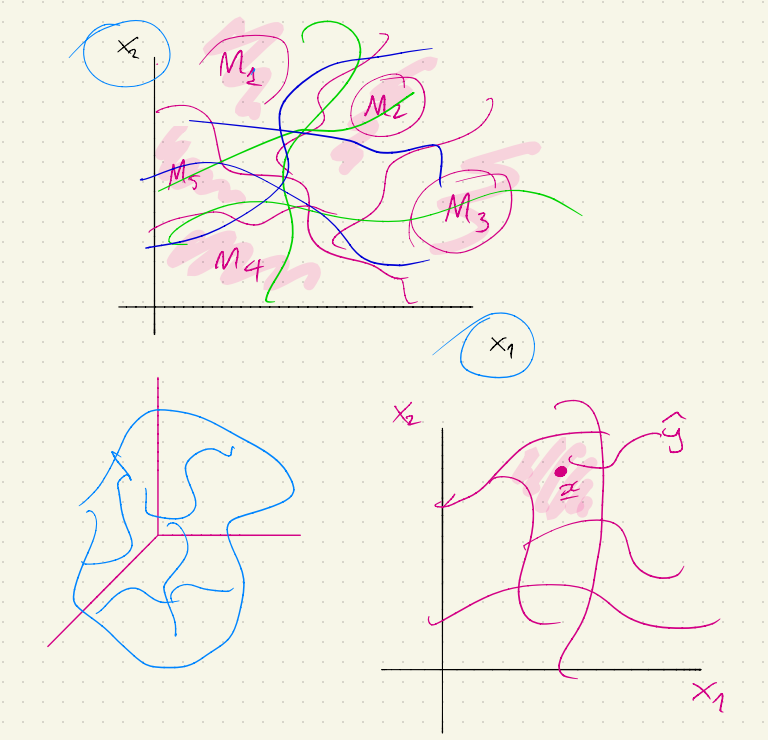 X₂
M₁
M₂
M₅
M₃
M₄
X₁
X₂
ŷ
x
X₁